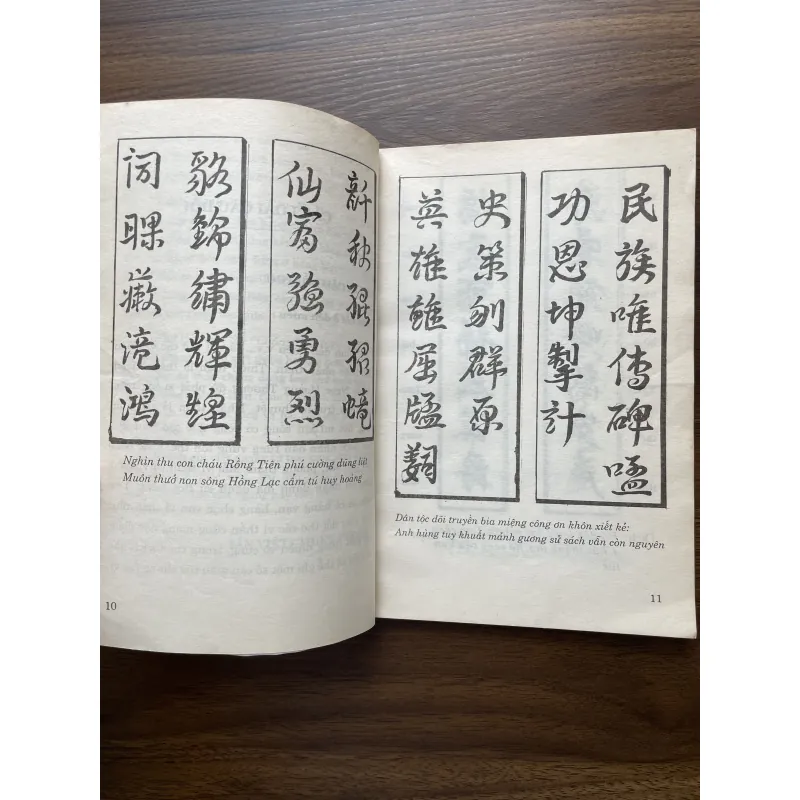 秋
仙富強勇烈
鴻
貉錦繡輝煌
Nghìn thu con cháu Rồng Tiên phú cường dũng liệt
Muôn thuở non sông Hồng Lạc cẩm tú huy hoàng
10
民族唯傳碑
功恩坤掣計
英雄雖屈
史策刎群原
Dân tộc dõi truyền bia miệng công ơn khôn xiết kể:
Anh hùng tuy khuất mảnh gương sử sách vẫn còn nguyên
11